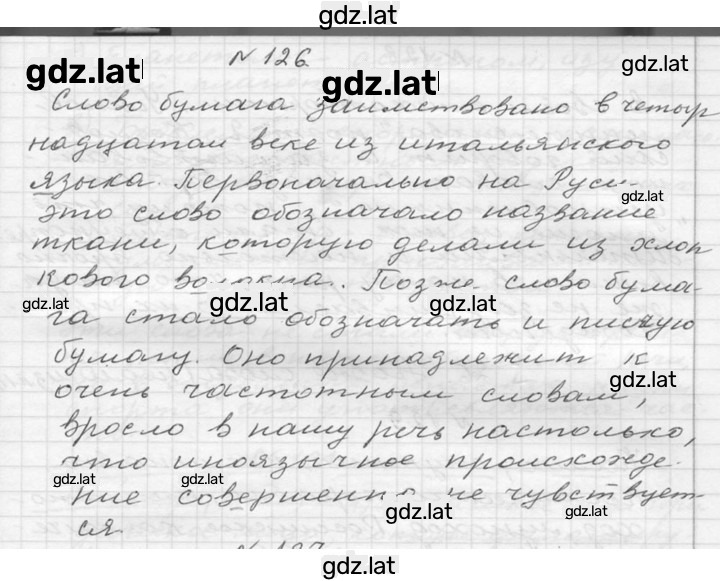 gdz.lat
N 126
gdz.lat
gdz.lat
gdz.lat
Слово бумага заимствовано в четыр
надцатом веке из итальянского
языка. Первоначально на Руси
gdz.lat
это слово обозначало название
ткани, которую делали из хлоп
кового волокна. Позже слово бума-
gdz.lat
gdz.lat
gdz.lat
га стало обозначать и писчую
бумагу. Оно принадлежит к
gdz.lat
очень частотным словам,
вросло в нашу речь настолько,
что иноязычное происхожде-
gdz.lat
gdz.lat
ние совершенно не чувствует-
gdz.lat
gdz.lat
ся
gdz.lat